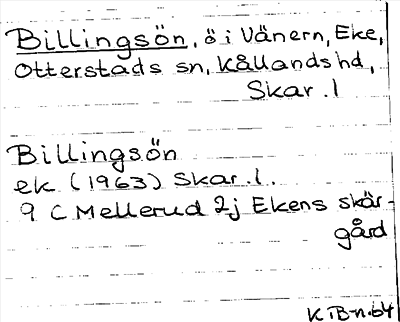 Billingsön, ö i Vänern, Eke,
Otterstads sn, Kållands hd,
Skar. l
Billingsön
ek (1963) Skar. l.
9 C Mellerud 2j Ekens skär-
gård
K iB-n. 64